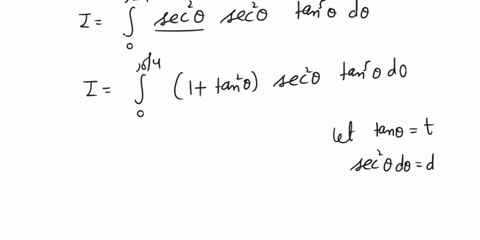 I = ∫₀ sec²θ sec²θ tan⁵θ dθ
I = ∫₀^π/4 (1 + tan²θ) sec²θ tan⁵θ dθ
let tanθ = t
sec²θ dθ = d